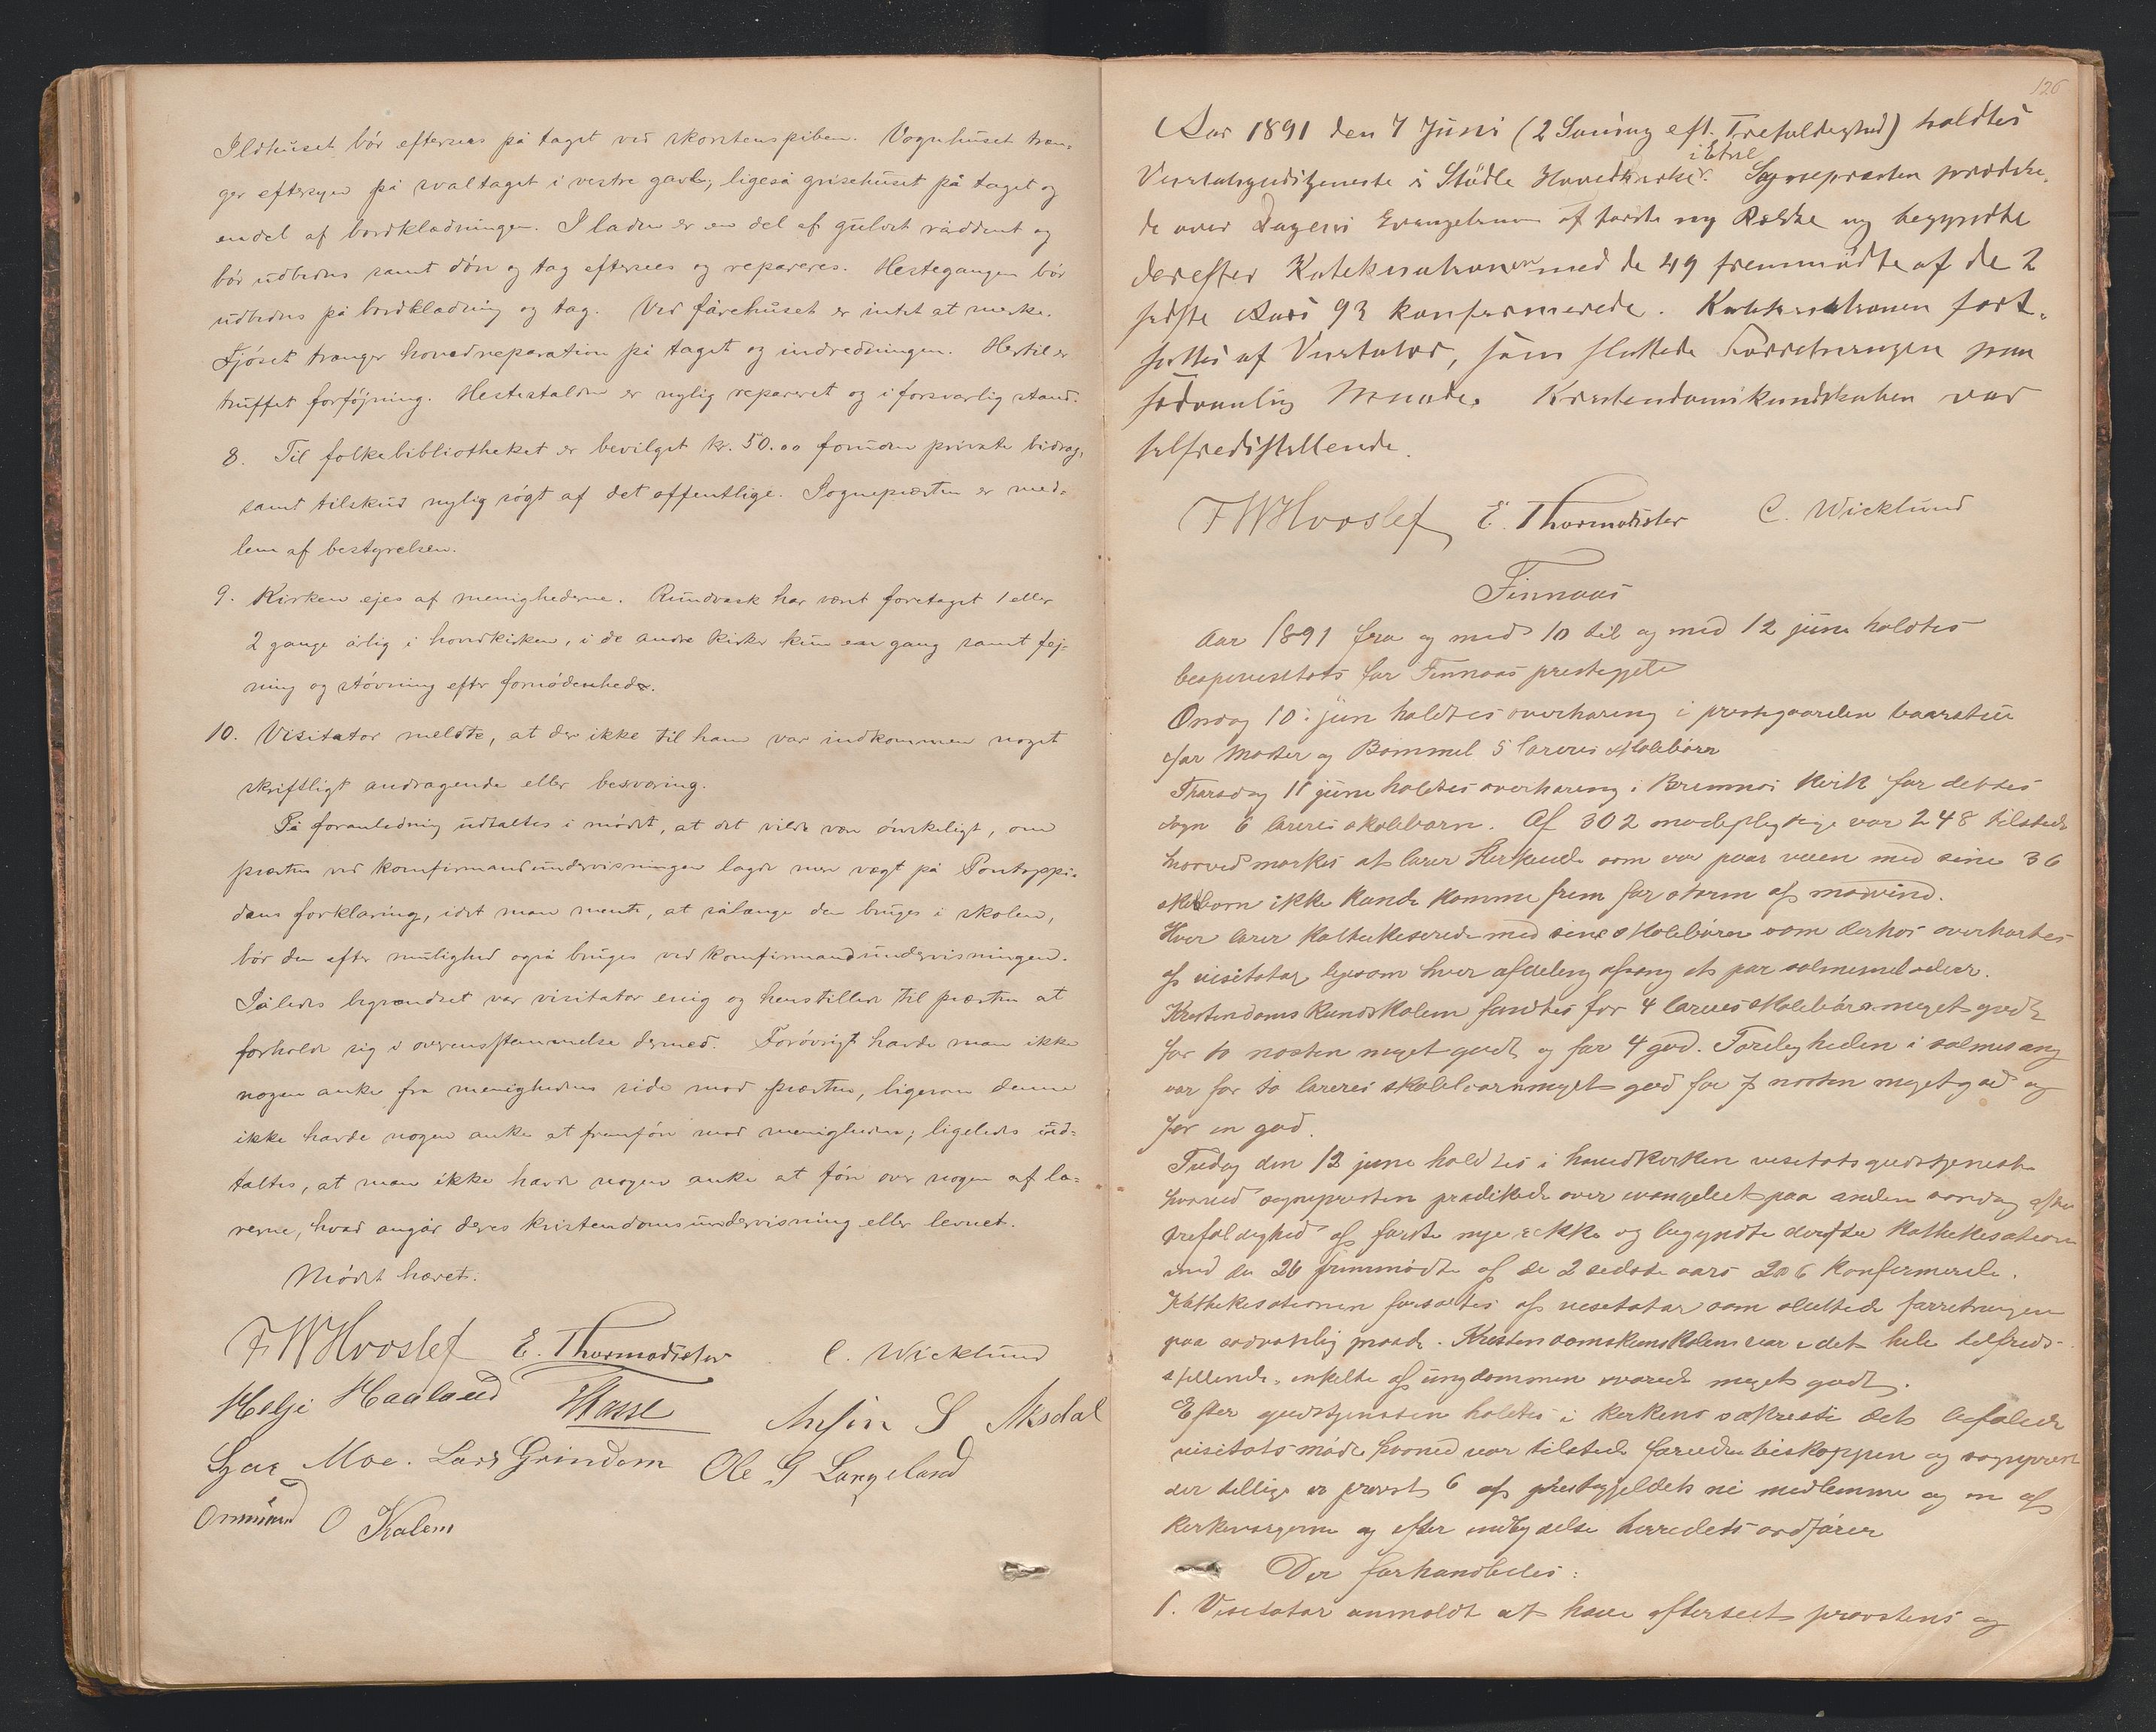 Ildhuset bör efterses på taget ved skorstenspiben. Vognhuset træn-
ger eftersyn på svaltaget i vestre gavl, ligeså grisehuset på taget og
endel af bordklædningen. I laden er en del af gulvet råddent og
bör udbedres samt dör og tag efterses og repareres. Hestegangen bör
udbedres på bordklædning og tag. Ved fårehuset er intet at merke.
Fjöset trænger hovedreparation på taget og indredningen. Hertil er
truffet forföjning. Hestestalden er nylig repareret og i forsvarlig stand.
8. Til folkebibliotheket er bevilget kr. 50.00 foruden private bidrag,
samt tilskud nylig sögt af det offentlige. Sognepræsten er med-
lem af bestyrelsen.
9. Kirken ejes af menighederne. Rundvask har været foretaget 1 eller
2 gange årlig i hovedkirken, i de andre kirker kun en gang samt fej-
ning og stövning efter fornödenhed.
10. Visitator meldte, at der ikke til ham var indkommen noget
skriftligt andragende eller besværing.
På foranledning udtaltes i mödet, at det vilde være önskeligt, om
præsten ved konfirmandundervisningen lagde mer vægt på Pontoppi-
dans forklaring, idet man mente, at sålænge den bruges i skolen,
bör den efter mulighed også bruges ved konfirmandundervisningen.
Således begrændset var visitator enig og henstillede til præsten at
forholde sig i overensstemmelse dermed. Forövrigt havde man ikke
nogen anke fra menighedens side mod præsten, ligesom denne
ikke havde nogen anke at fremföre mod menigheden; ligeledes ud-
taltes, at man ikke havde nogen anke at före over nogen af læ-
rerne, hvad angår deres kristendomsundervisning eller levnet.
Mödet hævet.
F W Hvoslef E. Thormodsæter C. Wicklund
Helje Haaland Hasse S Aksdal
Moe. Lars Grindem Ole G Langeland
Ommund O Kalem
126
Aar 1891 den 7 Juni (2 Söndag eft. Trefoldighed) holdtes
i Etne
Visitatsgudstjeneste i Stödle Hovedkirke. Sognepræsten prædike-
de over Dagens Evangelium af første ny Række og begyndte
derefter Katekisationen med de 49 fremmödte af de 2
sidste Aars 93 konfirmerede. Katekisationen fort-
sattes af Visitator, som sluttede Forretningen paa
sædvanlig Maade. Kristendomskundskaben var
tilfredsstillende.
F W Hvoslef E. Thormodsæter C. Wicklund
Finnaas
Aar 1891 fra og med 10 til og med 12 june holdtes
bispevisitats for Finnaas prestegjeld
Onsdag 10. jun holdtes overhøring i prestegaarden
for Moster og Bømmel 5 læreres skolebørn
Thorsdag 11 june holdtes overhøring i Bremnes kirk for dettes
sogn 6 læreres skolebørn. Af 302 mødepligtige var 248 tilstede
hvorved merkes at lærer som var paa veien med sine 36
skolebørn ikke kunde komme frem for storm af modvind.
Hver lærer kathekiserede med sine skolebørn som derhos overhørtes
af visitator ligesom hver afdeling afsang et par salmemelodier.
Kristendoms kundskaben fandtes for 4 læreres skolebørn meget god
for to næsten meget god og for 4 god. Færdigheden i salmesang
var for to læreres skolebørn meget god for 7 næsten meget god og
for en god.
Fredag den 12 june holdtes i hovedkirken visitatsgudstjeneste
hvorved sognepresten prædikede over evangeliet paa anden søndag efter
trefoldighed af første nye rekke og begyndte derefter kathekisationen
med de 26 fremmødte af de 2 sidste aars 206 konfirmerede.
Kathekisationen fortsattes af visitator som sluttede forretningen
paa sædvanlig maade. Kristendomskundskaben var i det hele tilfreds-
stillende, enkelte af ungdommen svarede meget godt.
Efter gudstjenesten holdtes i kirkens sakresti det befalede
visitatsmøde hvorved var tilstede foruden biskoppen og sogneprest
der tillige er provst 6 af prestegjeldets ni medlemmer og en af
kirkevergerne og efter indbydelse herredets ordfører
Der forhandledes:
1. Visitator anmeldt at have efterseet provstens og